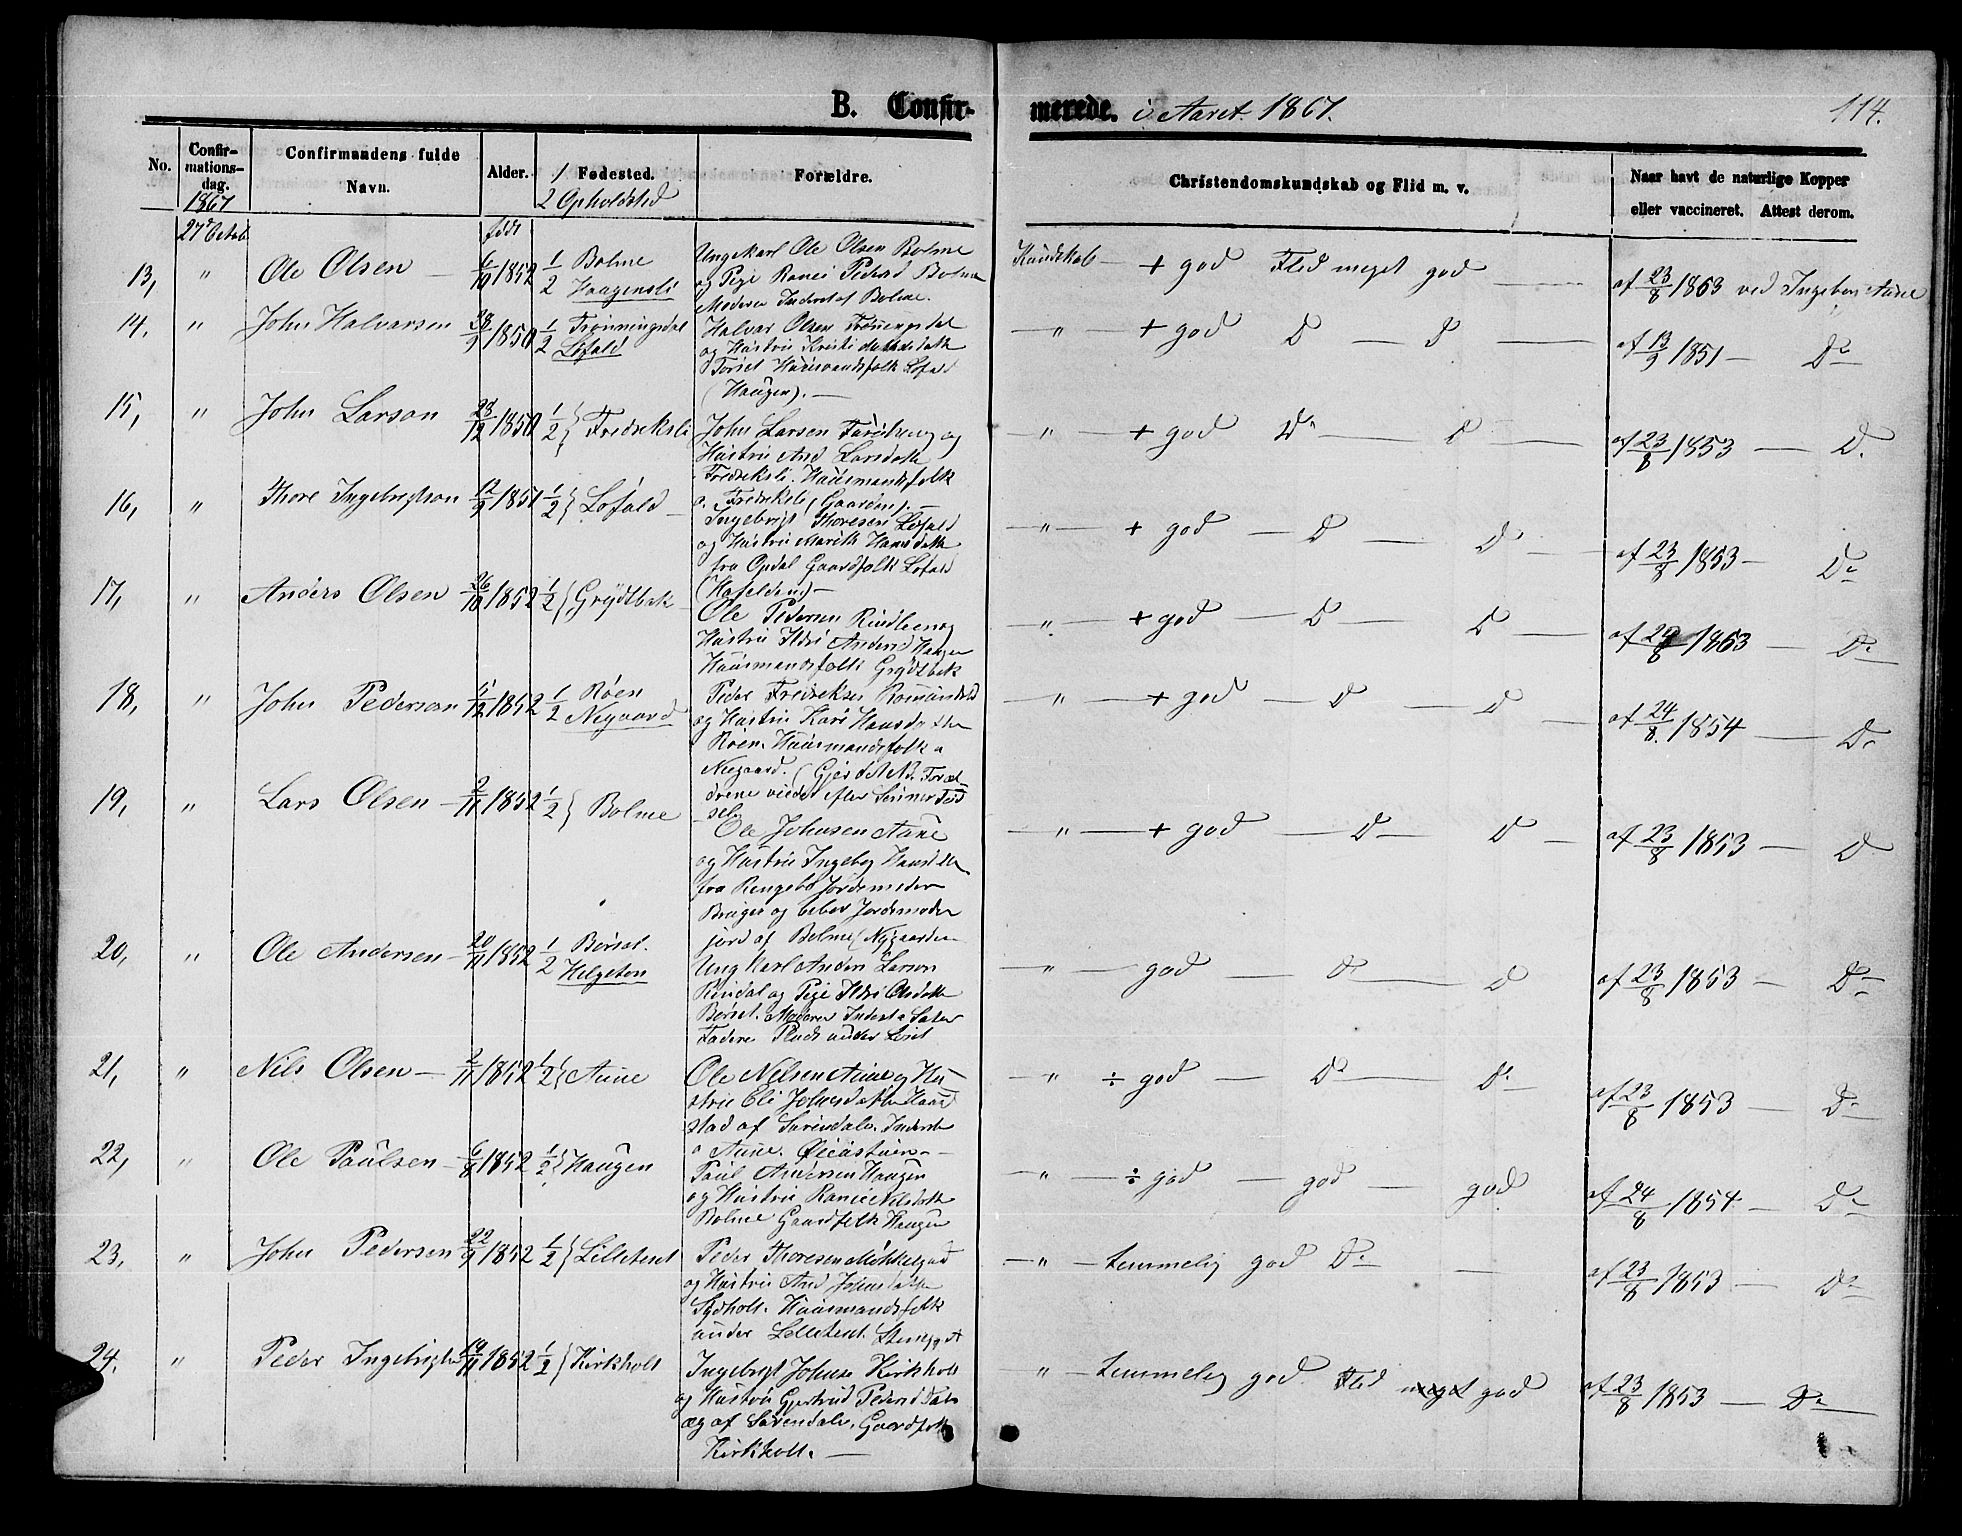 B. Confir-
merede. i Aaret 1867.
114.
No.
Confir-
mations-
dag.
1867
Confirmandens fulde
Navn.
Alder.
1 Fødested.
2 Opholdsted
Forældre.
Christendomskundskab og Flid m. v.
Naar havt de naturlige Kopper
eller vaccineret. Attest derom.
27de Octob.
født
13, " Ole Olsen — 6/10 1852 1/2 Bolme
Haagensli
Ungekarl Ole Olsen Bolme
og Pige Ranei Pedersd Bolme
Moderen Inderst af Bolme.
Kundskab — + god Flid meget god —
af 23/8 1853 ved Ingebor Aune
14. " John Halvarsen 28/9 1850 1/2 Trønningsdal
Løfald
Halvar Olsen Trønningsdal
og Hustru Kristi
Torset Huusmandsfolk Løfald
(Haugen). —
— " — + god D — D —
af 13/9 1851 — Do
15, " John Larson 28/12 1850 1/2 } Fredreksli
John Larsen og
Hustru And Larsdatte
Fredreksli. Huusmandsfolk
a. Fredreksli (Gaarden). —
— " — + god Do — D —
af 23/8 1853 — D.
16, " Thore Ingebrigtson 12/9 1851 1/2 } Løfald —
Ingebrigt Thoresen Løfald
og Hustru Marith Hansdatte
fra Opdal Gaardfolk Løfald
— " — + god — D — D —
af 23/8 1853 — Do
17, " Anders Olsen 26/10 1852 1/2 } Grydtbak —
Ole Pedersen Rindleen og
Hustru Ildri Andersd Haugen
Huusmandsfolk Grydtbak
— " — + god — D — D —
af 24/8 1853 — Do
18, " John Pederson 11/12 1852 1/2 Røen
Negaard
Peder Fredreksen Romundstd
og Hustru Kari Hansdatter
Røen. Huusmandsfolk a
Neegaard. (Gjerdet NB. Foræl-
drene viedet efter Sønnes Fød
sel.
— " — + god — D — D —
af 24/8. 1854 — Do
19, " Lars Olsen — 2/11 1852 1/2 } Bolme
Ole Johnsen Aune
og Hustru Ingebor Hansdtte
fra Rengebo Jordemoder
Bruger og beboe Jordemoder
jord af Bolme (Nygaarden
— " — + god — D — D —
af 23/8 1853 — D
20, " Ole Andersen — 20/11 1852 1/2 Børset.
Helgeton
Ung Karl Anders Larson
Rindal og Pige Ildri Olsdatte
Børset. Moderen Inderst a Sæter
Fadere Plads under Løset
— " — god — Do — D
af 23/8 1853 — Do
21, " Nils Olsen — 2/11 1852 1/2 } Aune
Ole Nielsen Aune og Hu
strue Eli Johnsdatte Haar
stad af Surendalen. Inderste
a Aune.
— " ÷ god — Do — Do
af 23/8 1853 — Do
22, " Ole Paulsen — 6/8 1852 1/2 } Haugen
Paul Andersen Haugen
og Hustru Ranei Nilsdatte
Bolme Gaardfolk Haugen
— " — ÷ god — god — god
af 24/8 1854 — Do
23, " John Pedersen 22/9 1852 1/2 } Lilletent
Peder Thoresen Mikkelgard
og Hustru And Johnsdatte
Sydholt. Huusmandsfolk
under Lilletent.
— " — temmelig god Do —
af 23/8 1853 — Do
24. " Peder Ingebrigts 19/11 1852 1/2 } Kirkholt
Ingebrigt Johnsen Kirkholt
og Hustru Gjertrud Pedersd
æg af Surendalen. Gaardfolk
Kirkholt. —
" — temmelig god. Flid meget god
af 23/8 1853 — Do